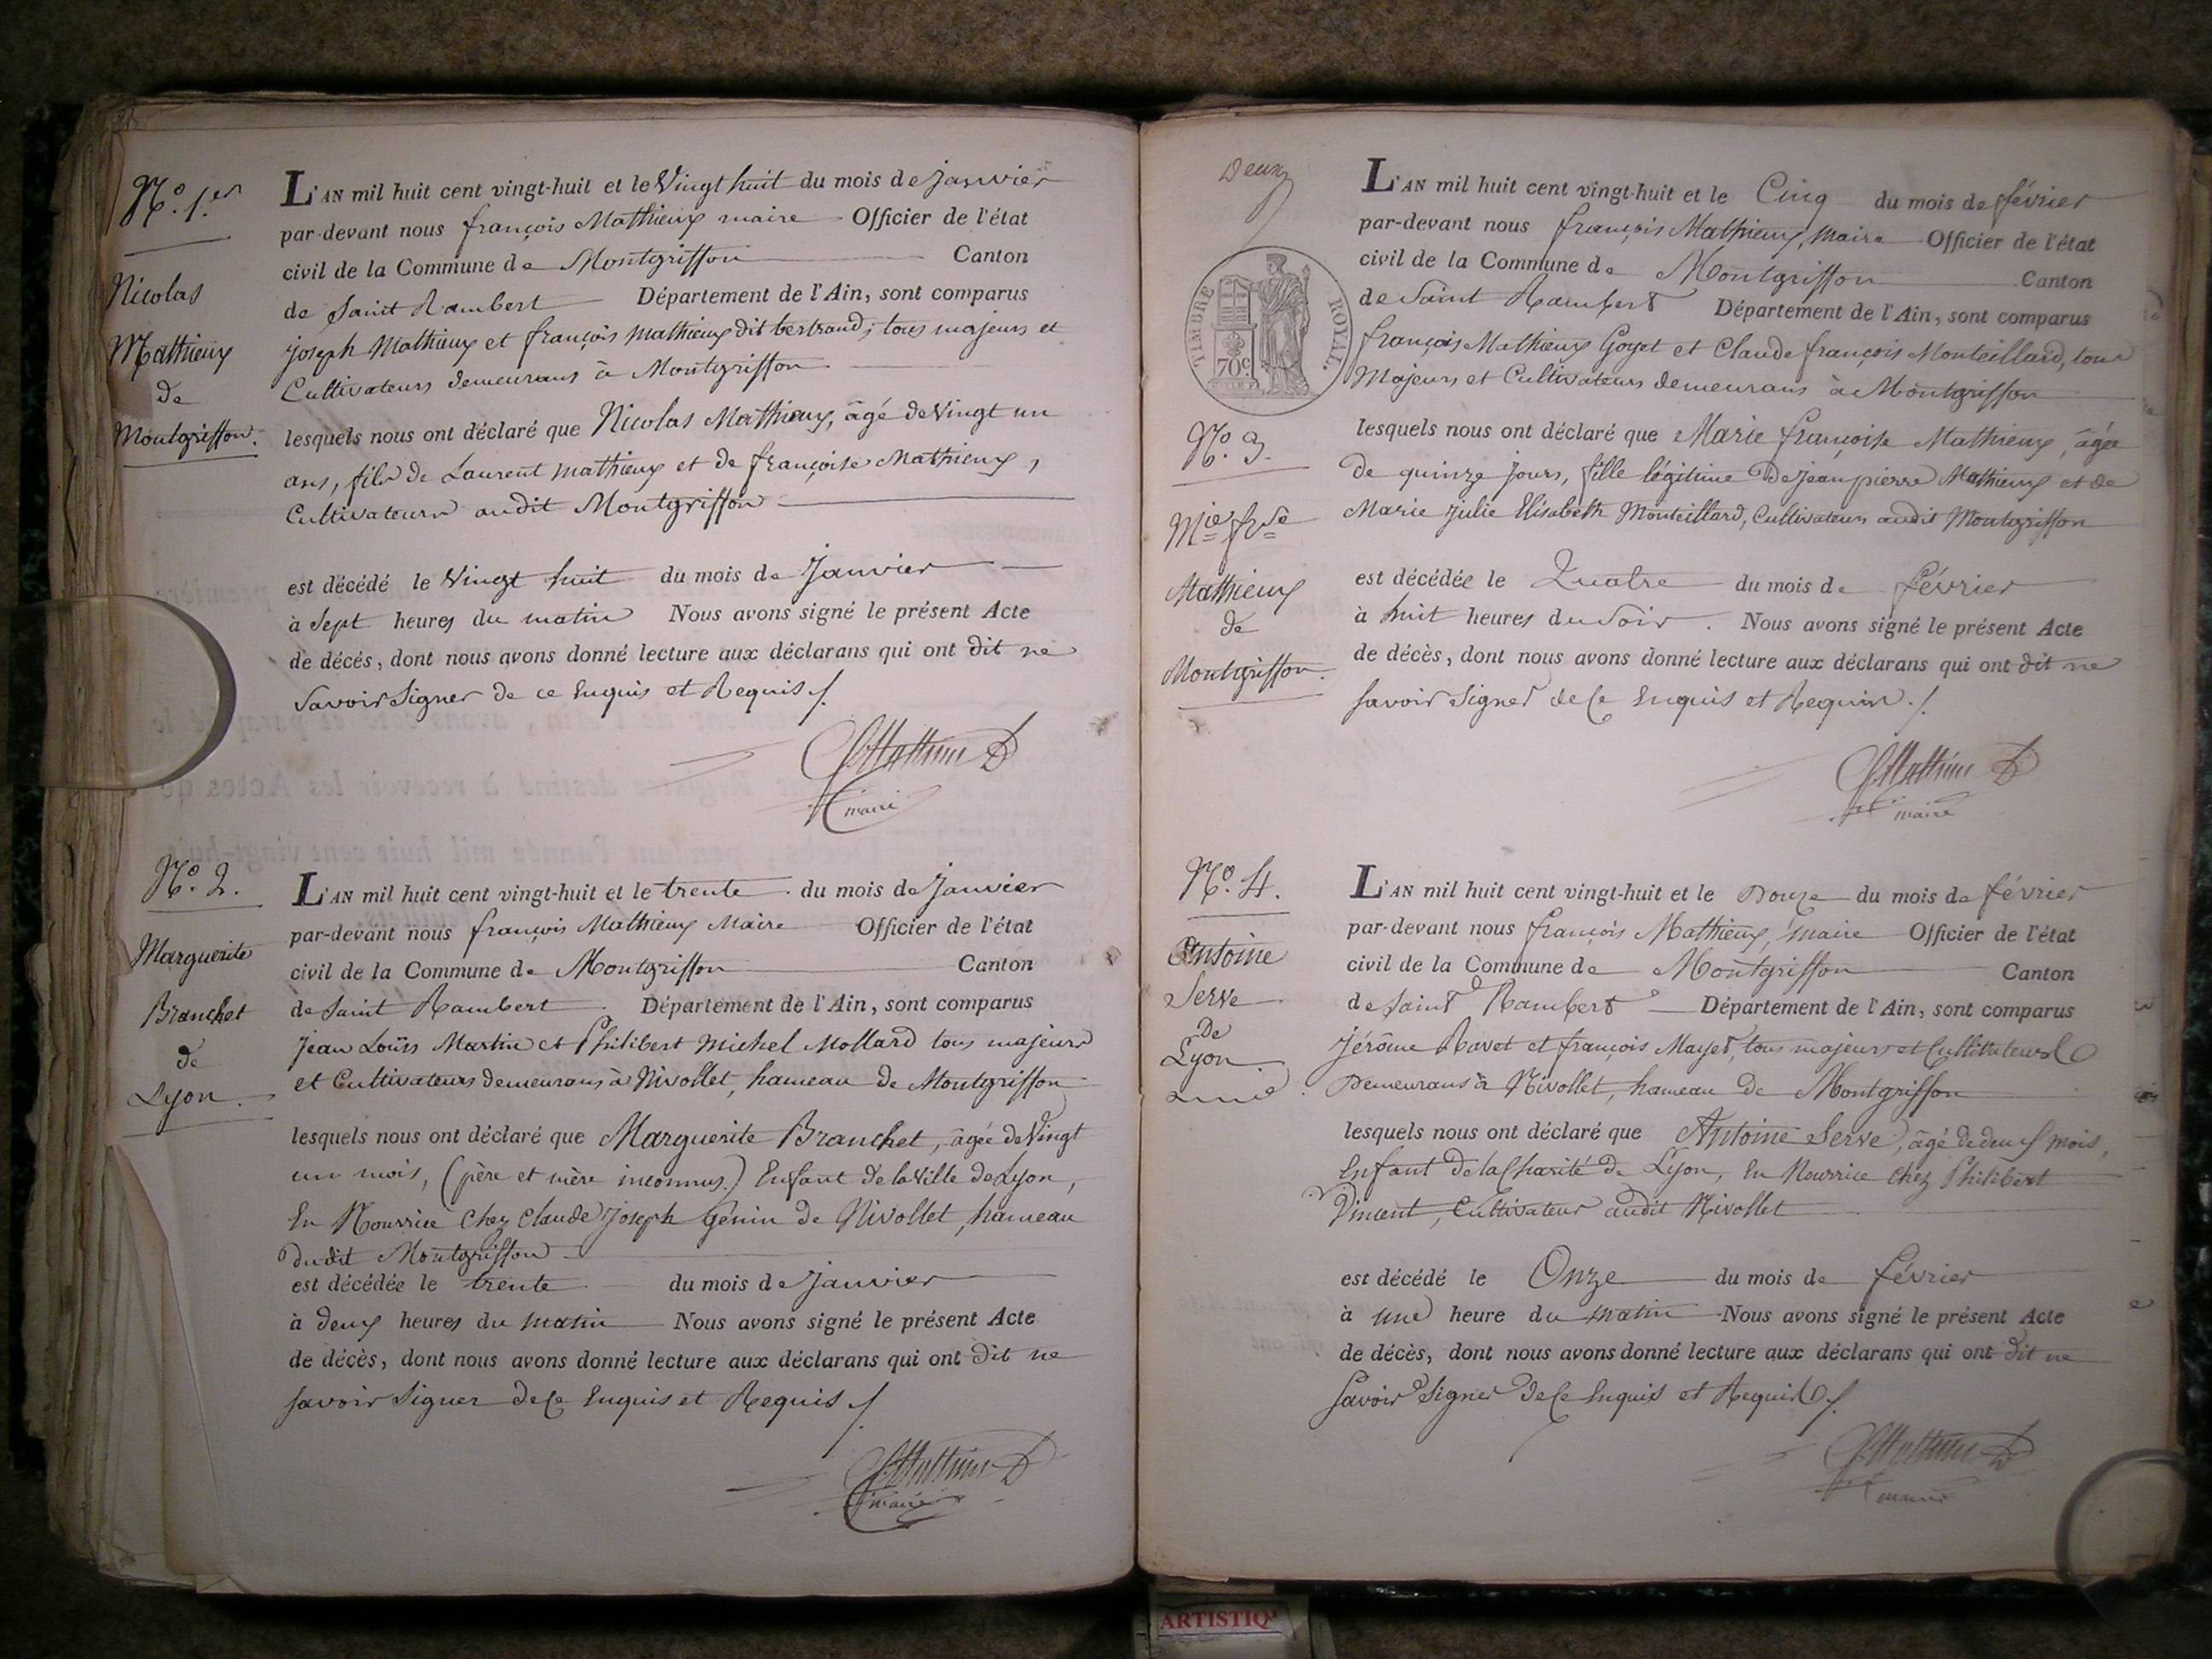 N.º 1.er
Nicolas
Mathieux
de
Montgriffon.
L'AN mil huit cent vingt-huit et le Vingt huit du mois de Janvier
par-devant nous françois Mathieux maire Officier de l'état
civil de la Commune de Montgriffon Canton
de Saint Rambert Département de l'Ain, sont comparus
Joseph Mathieux et françois Mathieux dit bertrand, tous majeurs et
Cultivateurs demeurans à Montgriffon
lesquels nous ont déclaré que Nicolas Mathieux, âgé de Vingt un
ans, fils de Laurent Mathieux et de françoise Mathieux,
Cultivateurs audit Montgriffon
est décédé le Vingt huit du mois de Janvier
à Sept heures du matin Nous avons signé le présent Acte
de décès, dont nous avons donné lecture aux déclarans qui ont dit ne
Savoir Signer de ce Enquis et Requis ./.
Mathieu
maire
N.º 2.
Marguerite
Branchet
de
Lyon.
L'AN mil huit cent vingt-huit et le trente du mois de Janvier
par-devant nous françois Mathieux Maire Officier de l'état
civil de la Commune de Montgriffon Canton
de Saint Rambert Département de l'Ain, sont comparus
Jean Louis Martin et Philibert Michel Mollard tous majeurs
et Cultivateurs demeurans à Nivollet, hameau de Montgriffon
lesquels nous ont déclaré que Marguerite Branchet, âgée de Vingt
un mois, (père et mère inconnus.) Enfant de la Ville de Lyon,
En Nourrice Chez Claude Joseph Génin de Nivollet, hameau
dudit Montgriffon
est décédée le trente du mois de Janvier
à deux heures du matin Nous avons signé le présent Acte
de décès, dont nous avons donné lecture aux déclarans qui ont dit ne
Savoir Signer de Ce Enquis et Requis ./.
Mathieu
maire
Deux
TIMBRE ROYAL.
70 c.
N.º 3.
M.ie f.se
Mathieux
de
Montgriffon.
L'AN mil huit cent vingt-huit et le Cinq du mois de février
par-devant nous françois Mathieux, Maire Officier de l'état
civil de la Commune de Montgriffon Canton
de Saint Rambert Département de l'Ain, sont comparus
françois Mathieux Goyet et Claude françois Monteillard, tous
Majeurs et Cultivateurs demeurans à Montgriffon
lesquels nous ont déclaré que Marie françoise Mathieux, âgée
de quinze jours, fille légitime de Jean pierre Mathieux et de
Marie Julie Elisabeth Monteillard, Cultivateurs audit Montgriffon
est décédée le Quatre du mois de février
à huit heures du Soir. Nous avons signé le présent Acte
de décès, dont nous avons donné lecture aux déclarans qui ont dit ne
Savoir Signer de Ce Enquis et Requis ./.
Mathieu
maire
N.º 4.
Antoine
Serve
De
Lyon.
L'AN mil huit cent vingt-huit et le Douze du mois de février
par-devant nous françois Mathieux, maire Officier de l'état
civil de la Commune de Montgriffon Canton
de Saint Rambert Département de l'Ain, sont comparus
Jérôme Ravet et françois Mayet, tous majeurs et Cultivateurs
Demeurans à Nivollet, hameau de Montgriffon
lesquels nous ont déclaré que Antoine Serve, âgé de deux mois,
Enfant de la Charité de Lyon, En Nourrice Chez Philibert
Vincent, Cultivateur audit Nivollet
est décédé le Onze du mois de février
à une heure du matin Nous avons signé le présent Acte
de décès, dont nous avons donné lecture aux déclarans qui ont dit ne
Savoir Signer de Ce Enquis et Requis ./.
Mathieu
maire
ARTISTIQ